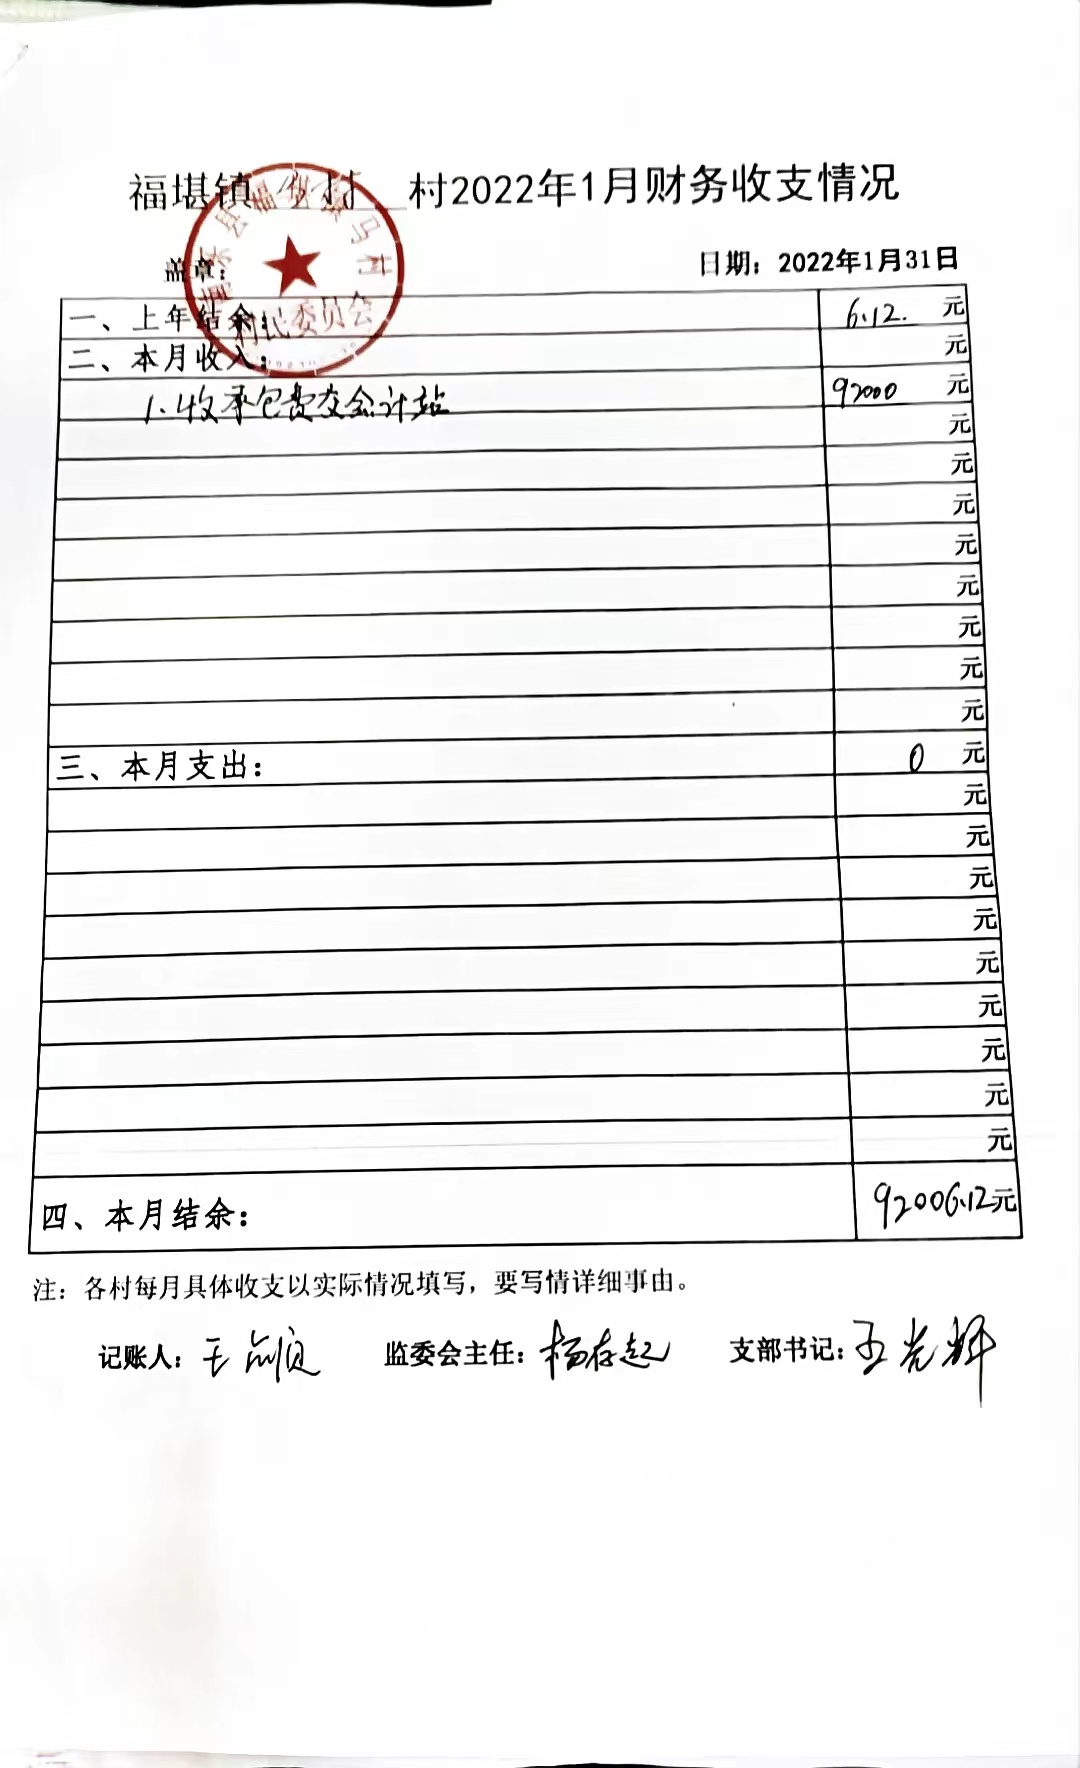 福堪镇 村2022年1月财务收支情况
盖章： 日期：2022年1月31日
村民委员会
一、上年结余： 6.12. 元
二、本月收入： 元
1.收承包费交会计站 92000 元
元
元
元
元
元
元
元
元
三、本月支出： 0 元
元
元
元
元
元
元
元
元
元
四、本月结余： 92006.12元
注：各村每月具体收支以实际情况填写，要写情详细事由。
记账人： 监委会主任：杨存起 支部书记：王光辉